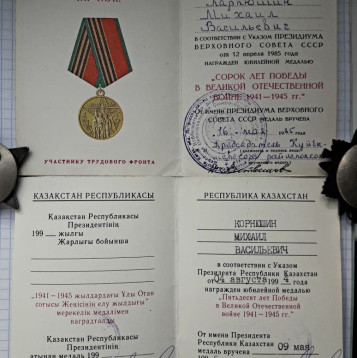 Михаил
Васильевич
в соответствии с Указом ПРЕЗИДИУМА
ВЕРХОВНОГО СОВЕТА СССР
от 12 апреля 1985 года
НАГРАЖДЕН ЮБИЛЕЙНОЙ МЕДАЛЬЮ
"СОРОК ЛЕТ ПОБЕДЫ
В ВЕЛИКОЙ ОТЕЧЕСТВЕННОЙ
ВОЙНЕ 1941—1945 гг."
ОТ ИМЕНИ ПРЕЗИДИУМА ВЕРХОВНОГО
СОВЕТА СССР МЕДАЛЬ ВРУЧЕНА
Председатель
УЧАСТНИКУ ТРУДОВОГО ФРОНТА
ҚАЗАҚСТАН РЕСПУБЛИКАСЫ
Қазақстан Республикасы
Президентінің
199 жылғы
Жарлығы бойынша
"1941—1945 жылдардағы Ұлы Отан
соғысы Жеңісінің елу жылдығы"
мерекелік медалімен
наградталды
Қазақстан Республикасы
Президентінің
атынан медаль 199
РЕСПУБЛИКА КАЗАХСТАН
КОРНЮШИН
МИХАИЛ
ВАСИЛЬЕВИЧ
в соответствии с Указом
Президента Республики Казахстан
04 августа 199 4 года
награжден юбилейной медалью
"Пятьдесят лет Победы
в Великой Отечественной
войне 1941—1945 гг."
От имени Президента
Республики Казахстан
медаль вручена 09 мая